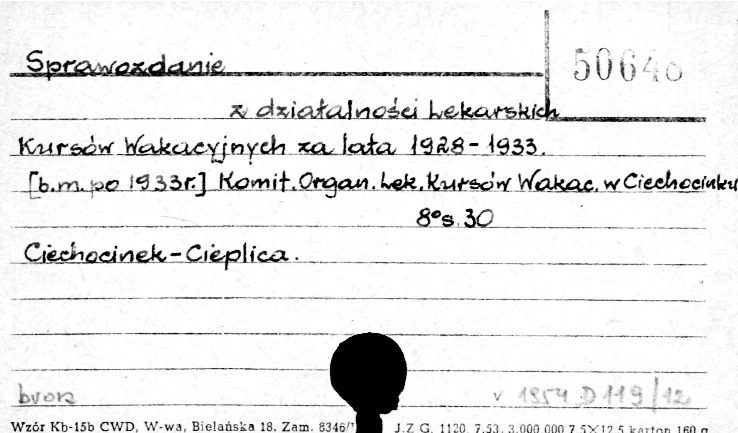 Sprawozdanie
50648
z działalności Lekarskich
Kursów Wakacyjnych za lata 1928-1933.
[b.m. po 1933r.] Komit. Organ. Lek. Kursów Wakac. w Ciechocinku
8° s. 30
Ciechocinek-Cieplica.
v 1954 D 119/12
Wzór Kb-15b CWD, W-wa, Bielańska 18. Zam. 8346/ J.Z.G. 1120. 7.53. 3.000.000 7,5×12,5 karton 160 g